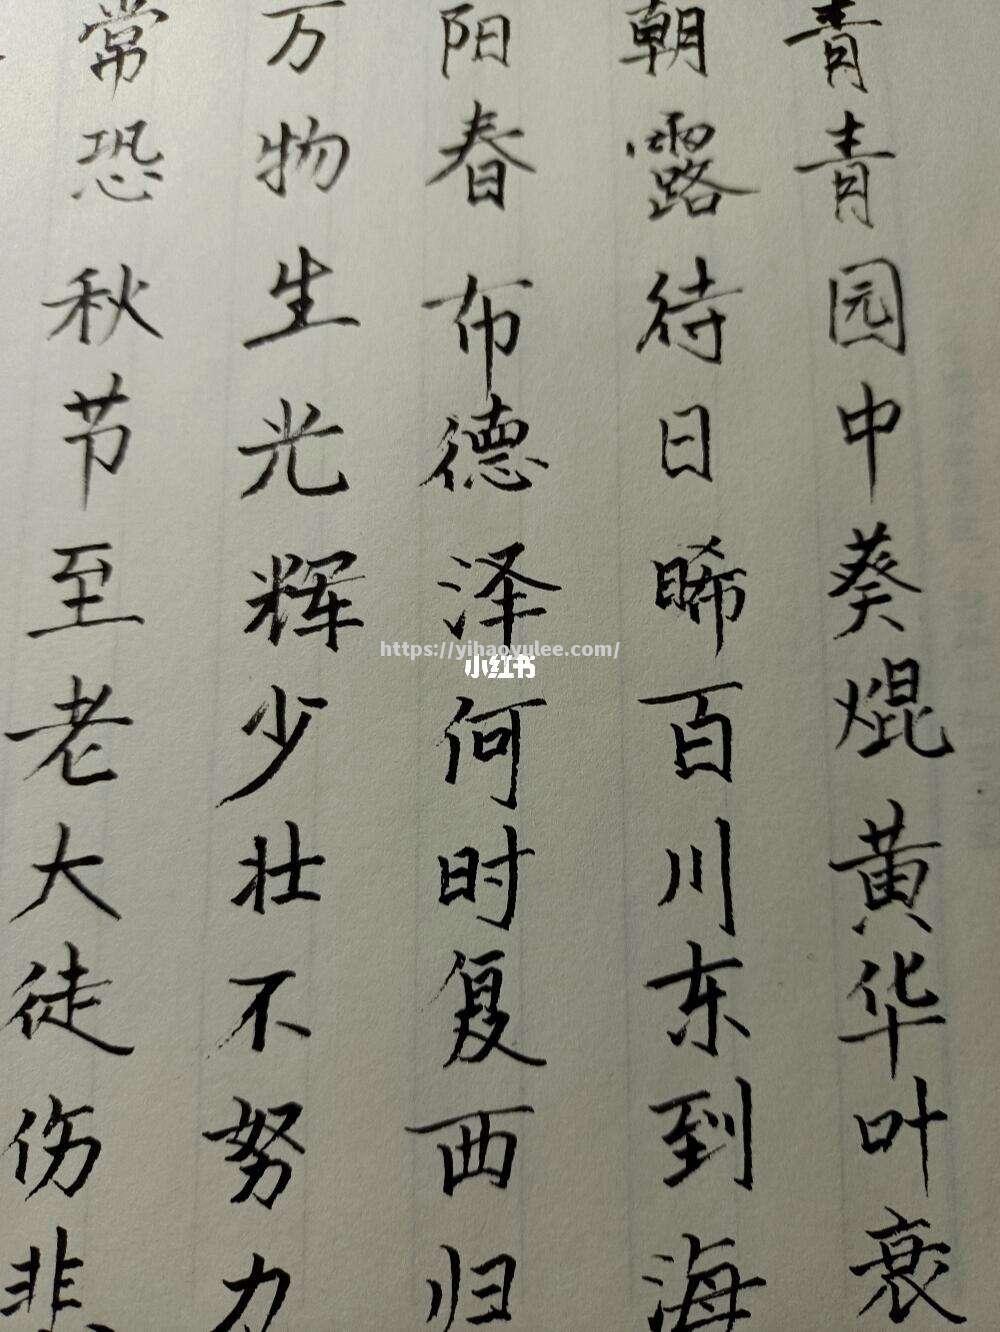 青青园中葵焜黄华叶衰
朝露待日晞百川东到海
阳春布德泽何时复西归
万物生光辉少壮不努力
常恐秋节至老大徒伤悲
https://yihaoyulee.com/
小红书